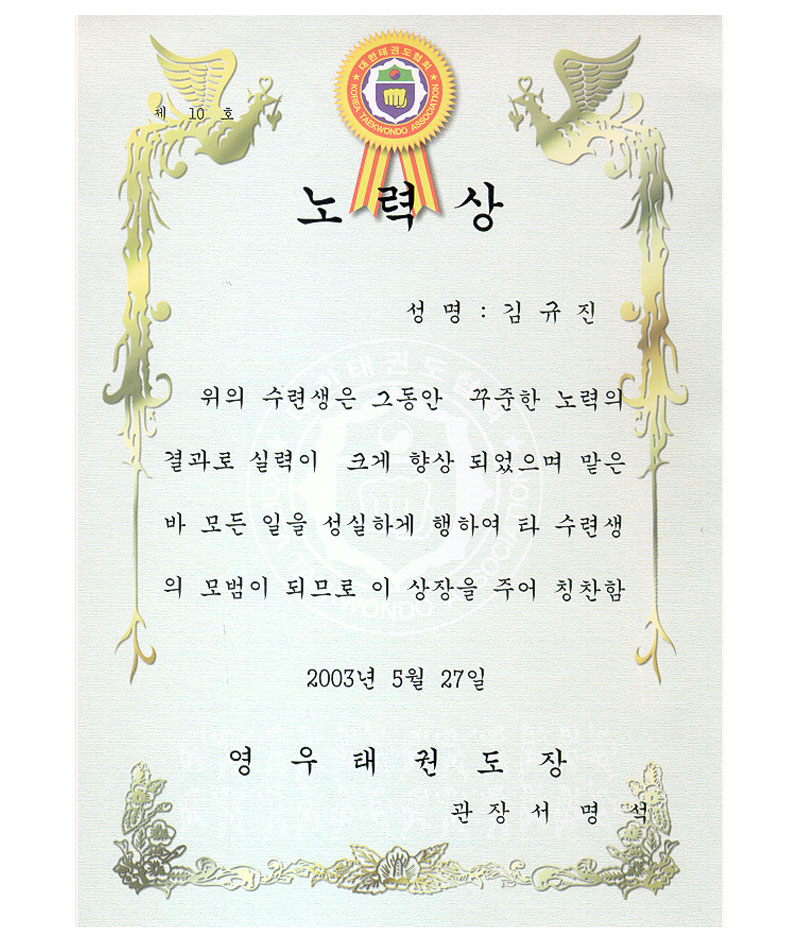 대한태권도협회
KOREA TAEKWONDO ASSOCIATION
제 10 호
노력상
성명 : 김규진
위의 수련생은 그동안 꾸준한 노력의
결과로 실력이 크게 향상 되었으며 맡은
바 모든 일을 성실하게 행하여 타 수련생
의 모범이 되므로 이 상장을 주어 칭찬함
2003년 5월 27일
영우태권도장
관장서명석